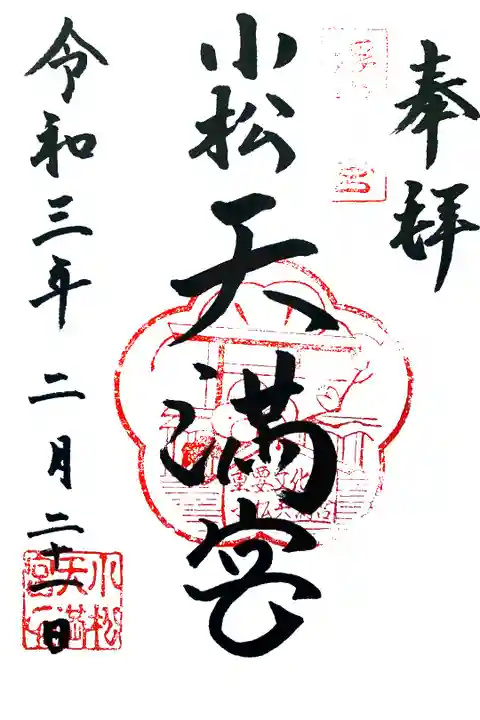 奉拝
小松天満宮
重要文化
小松天満宮
令和三年二月二十一日
小松天満宮